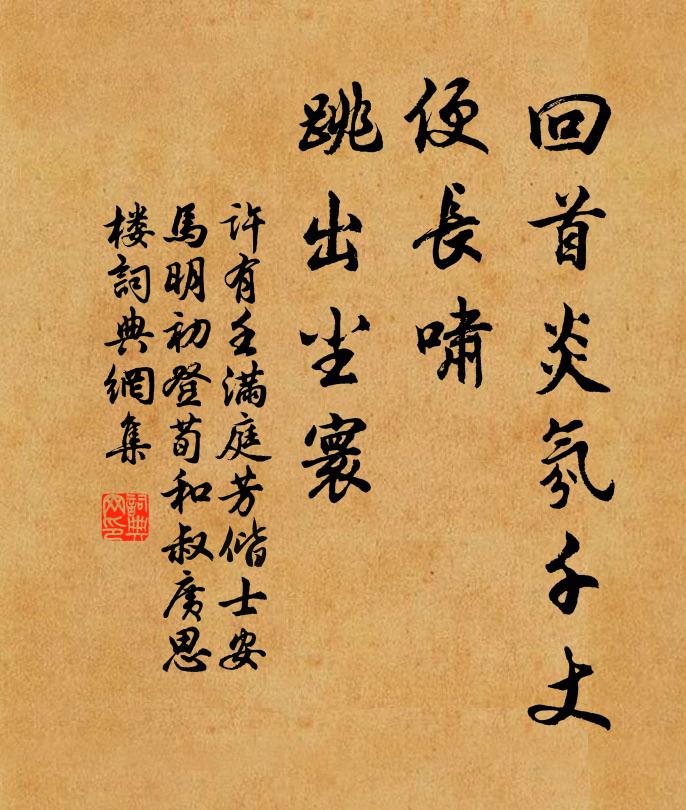 回首炎氛千丈
便長嘯
跳出尘寰
許有壬滿庭芳偕士安
馬明初登荀和叔廣思
楼詞典網集
詞典網印